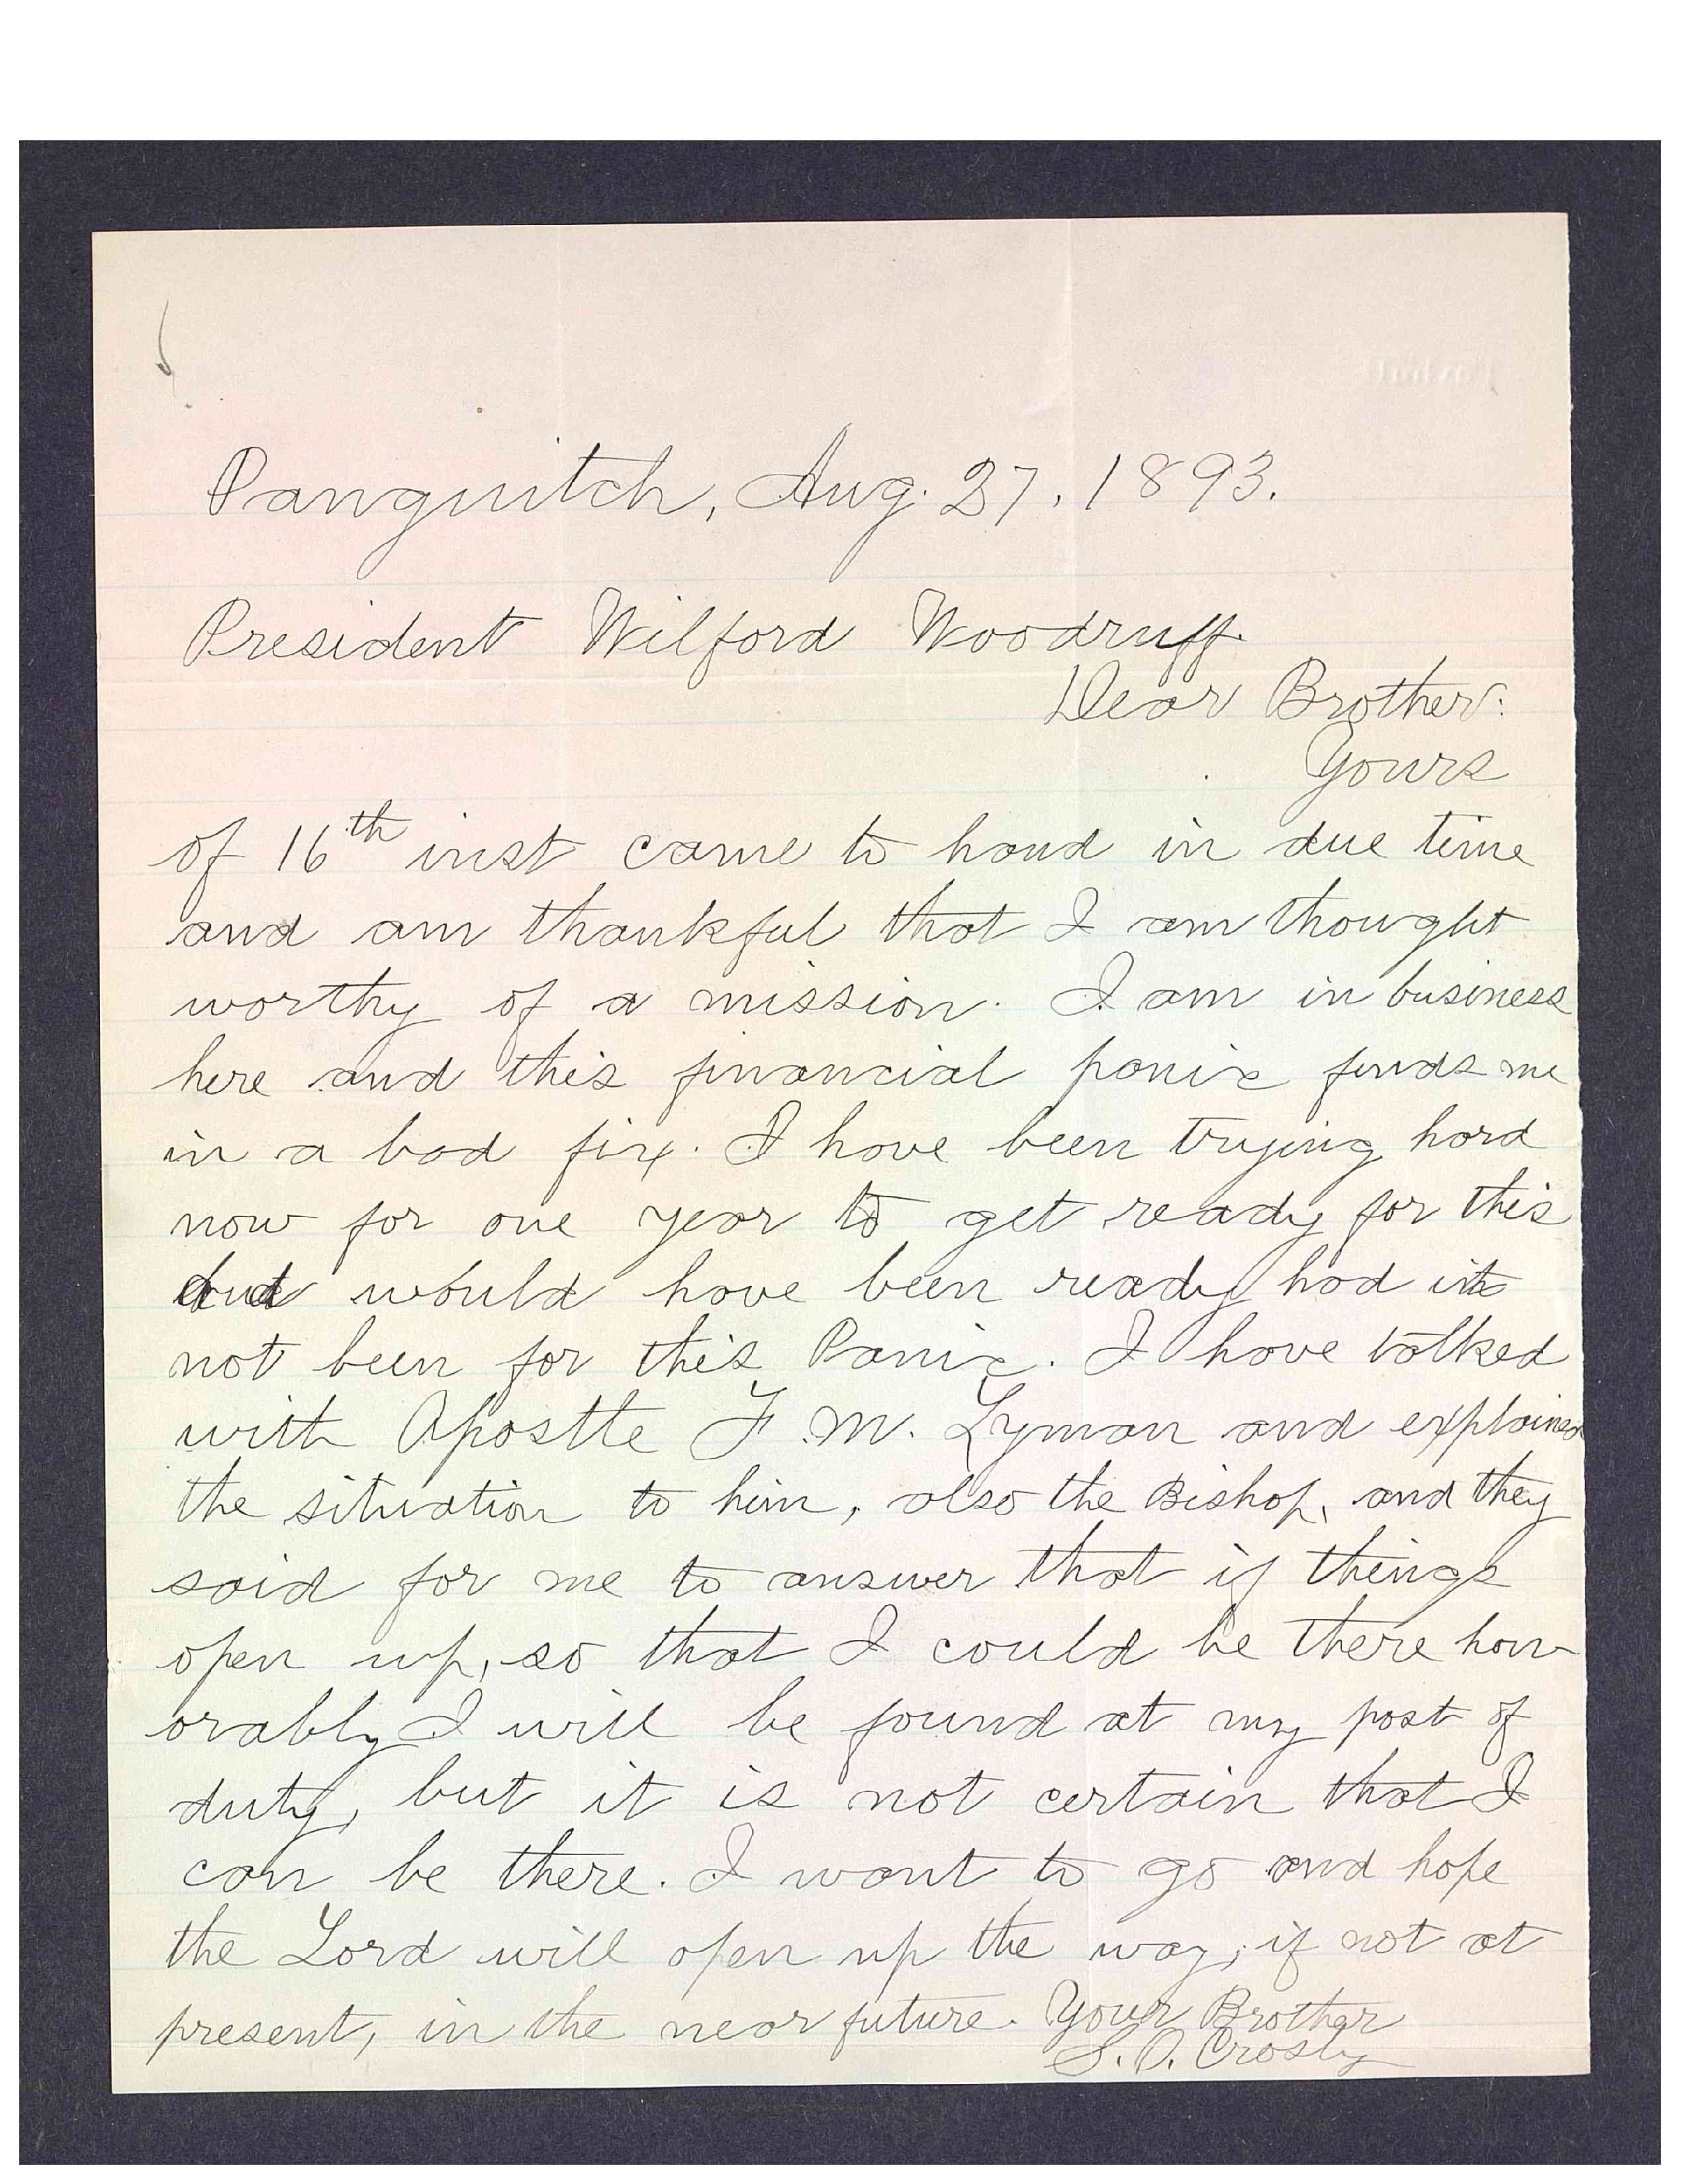 Panguitch, Aug. 27, 1893.
President Wilford Woodruff.
Dear Brother:
Yours
of 16th inst came to hand in due time
and am thankful that I am thought
worthy of a mission. I am in business
here and this financial panic finds me
in a bad fix. I have been trying hard
now for one year to get ready for this
and would have been ready had it
not been for this Panic. I have talked
with Apostle F. M. Lyman and explained
the situation to him, also the Bishop, and they
said for me to answer that if things
open up, so that I could be there hon-
orably I will be found at my post of
duty, but it is not certain that I
can be there. I want to go and hope
the Lord will open up the way, if not at
present, in the near future. Your Brother
S. O. Crosby